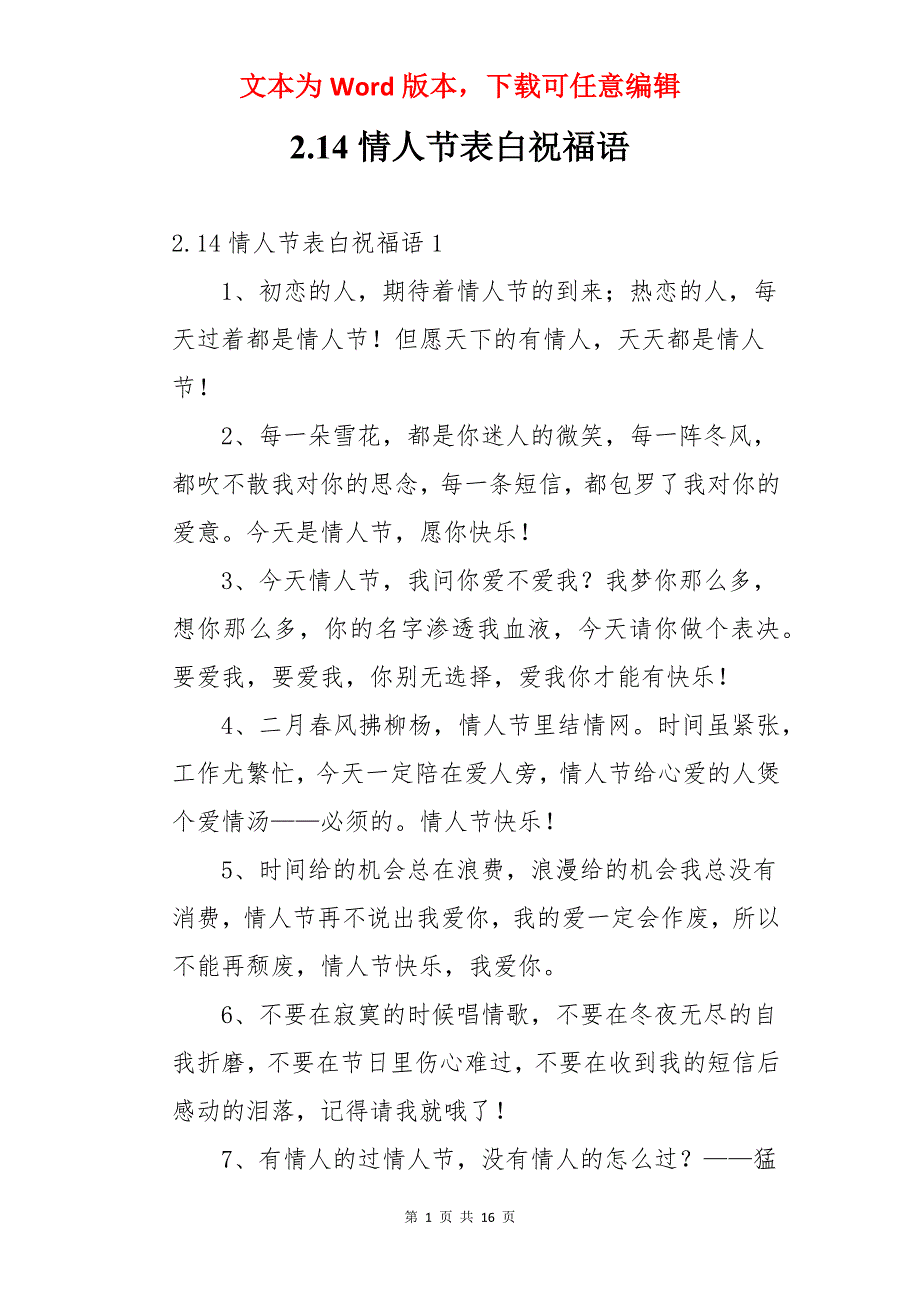 文本为 Word 版本，下载可任意编辑
2.14 情人节表白祝福语
2.14 情人节表白祝福语 1
1、初恋的人，期待着情人节的到来；热恋的人，每
天过着都是情人节！但愿天下的有情人，天天都是情人
节！
2、每一朵雪花，都是你迷人的微笑，每一阵冬风，
都吹不散我对你的思念，每一条短信，都包罗了我对你的
爱意。今天是情人节，愿你快乐！
3、今天情人节，我问你爱不爱我？我梦你那么多，
想你那么多，你的名字渗透我血液，今天请你做个表决。
要爱我，要爱我，你别无选择，爱我你才能有快乐！
4、二月春风拂柳杨，情人节里结情网。时间虽紧张，
工作尤繁忙，今天一定陪在爱人旁，情人节给心爱的人煲
个爱情汤——必须的。情人节快乐！
5、时间给的机会总在浪费，浪漫给的机会我总没有
消费，情人节再不说出我爱你，我的爱一定会作废，所以
不能再颓废，情人节快乐，我爱你。
6、不要在寂寞的时候唱情歌，不要在冬夜无尽的自
我折磨，不要在节日里伤心难过，不要在收到我的短信后
感动的泪落，记得请我就哦了！
7、有情人的过情人节，没有情人的怎么过？——猛
第 1 页 共 16 页